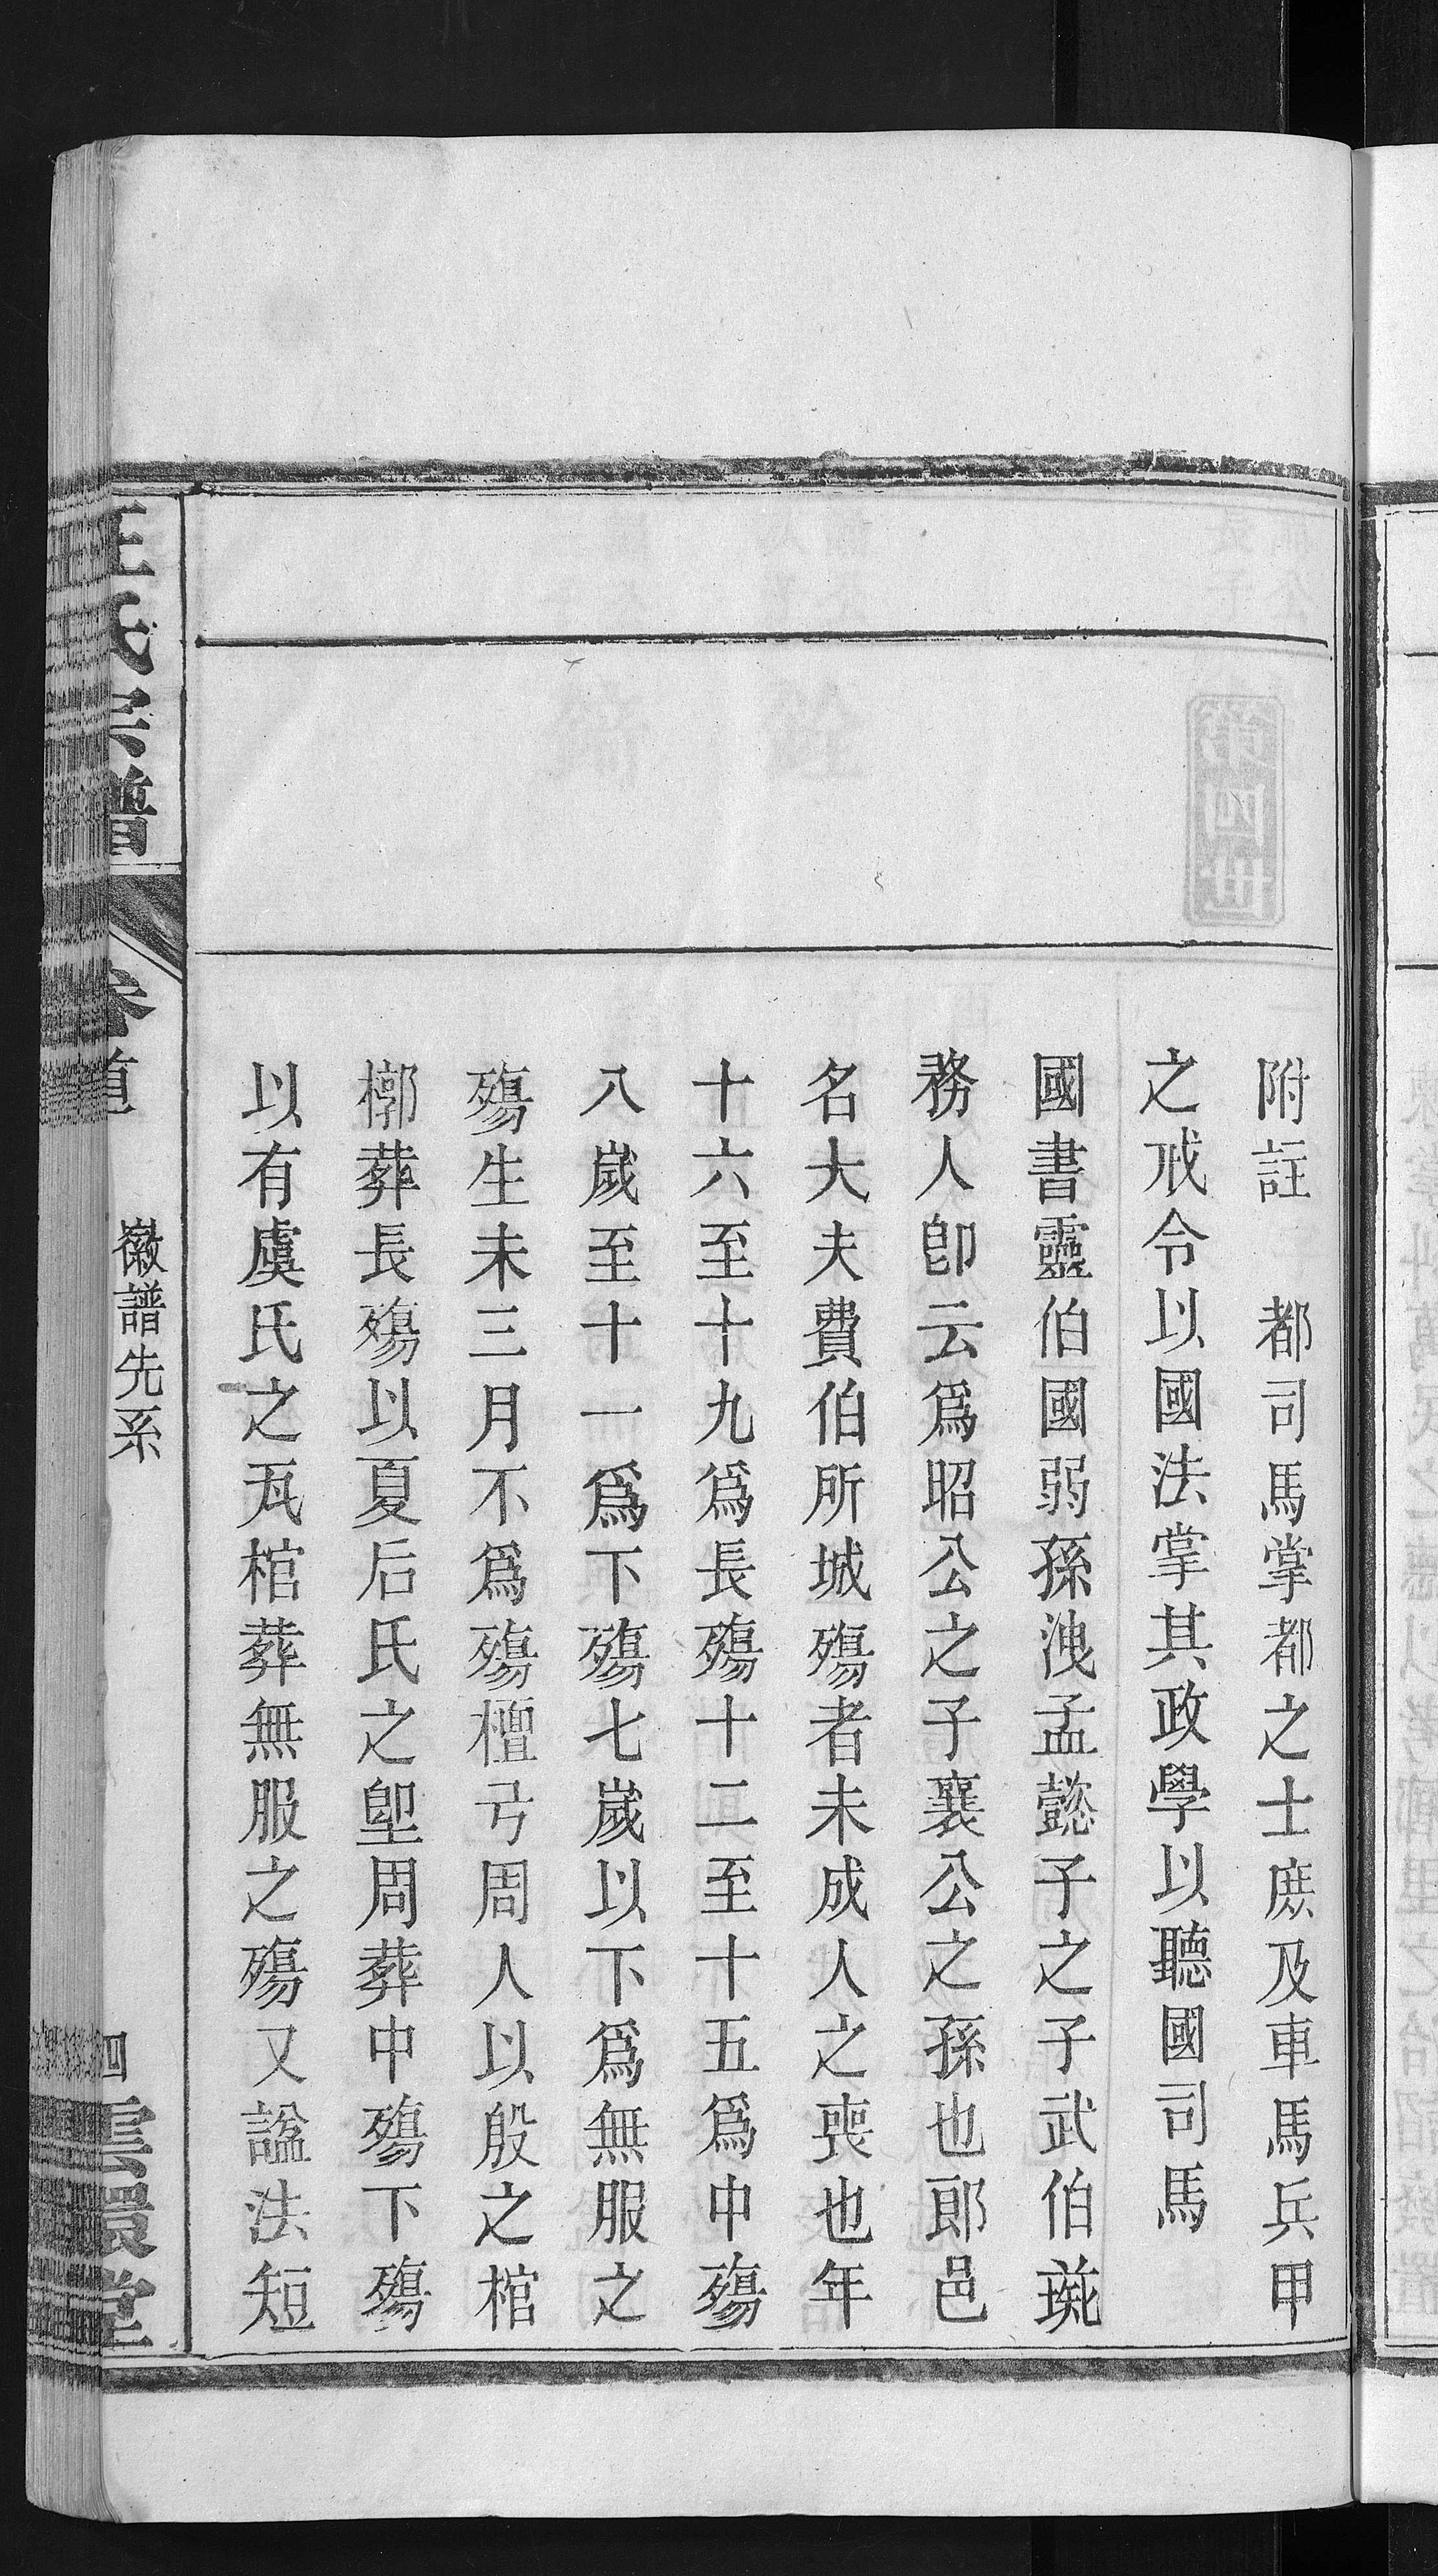 附註　都司馬掌都之士庶及車馬兵甲
之戒令以國法掌其政學以聽國司馬
國書靈伯國弱孫洩孟懿子之子武伯彘
務人卽云爲昭公之子襄公之孫也郎邑
名大夫費伯所城殤者未成人之喪也年
十六至十九爲長殤十二至十五爲中殤
八歲至十一爲下殤七歲以下爲無服之
殤生未三月不爲殤檀弓周人以殷之棺
槨葬長殤以夏后氏之堲周葬中殤下殤
以有虞氏之瓦棺葬無服之殤又諡法短
氏宗譜
卷首
徽譜先系
四
雲環堂